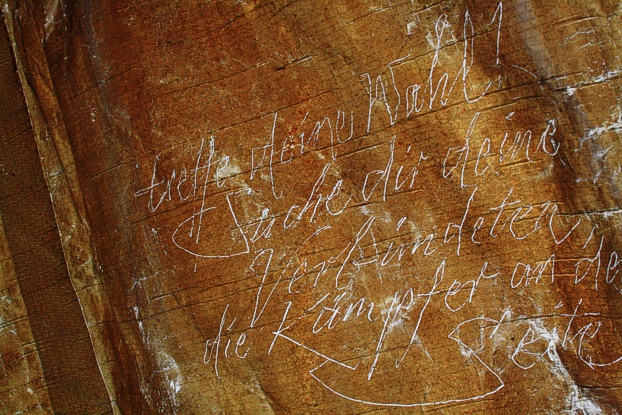 treffe deine Wahl!
Suche dir deine
Verbündeten,
die Kämpfer an de
Seite